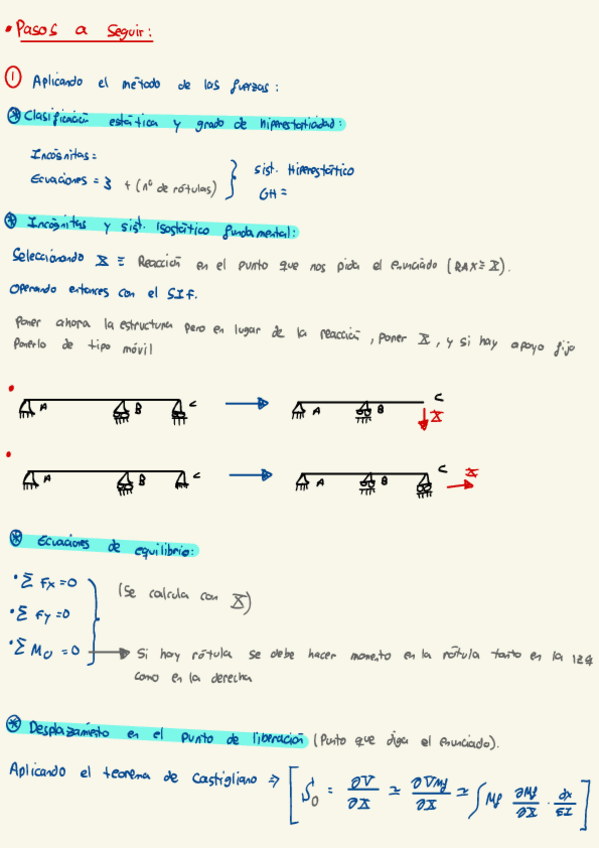 • Pasos a seguir:
① Aplicando el método de las fuerzas:
* Clasificación estática y grado de hiperestaticidad:
Incógnitas =
Ecuaciones = 3 + (nº de rótulas) } sist. Hiperestático
GH =
* Incógnitas y sist. Isostático fundamental:
Seleccionando X ≡ Reacción en el punto que nos pida el enunciado (RAX ≡ X).
Operando entonces con el S.I.F.
Poner ahora la estructura pero en lugar de la reacción, poner X, y si hay apoyo fijo
Ponerlo de tipo móvil
A B C → A B C X
A B C → A B C X
* Ecuaciones de equilibrio:
• Σ Fx = 0
• Σ Fy = 0
• Σ Mo = 0
(Se calcula con X)
Si hay rótula se debe hacer momento en la rótula tanto en la izq
como en la derecha
* Desplazamiento en el punto de liberación (Punto que diga el enunciado).
Aplicando el teorema de Castigliano ⇒ [ δo = ∂V/∂X ≃ ∂VMf/∂X ≃ ∫ Mf ∂Mf/∂X · dx/EI ]